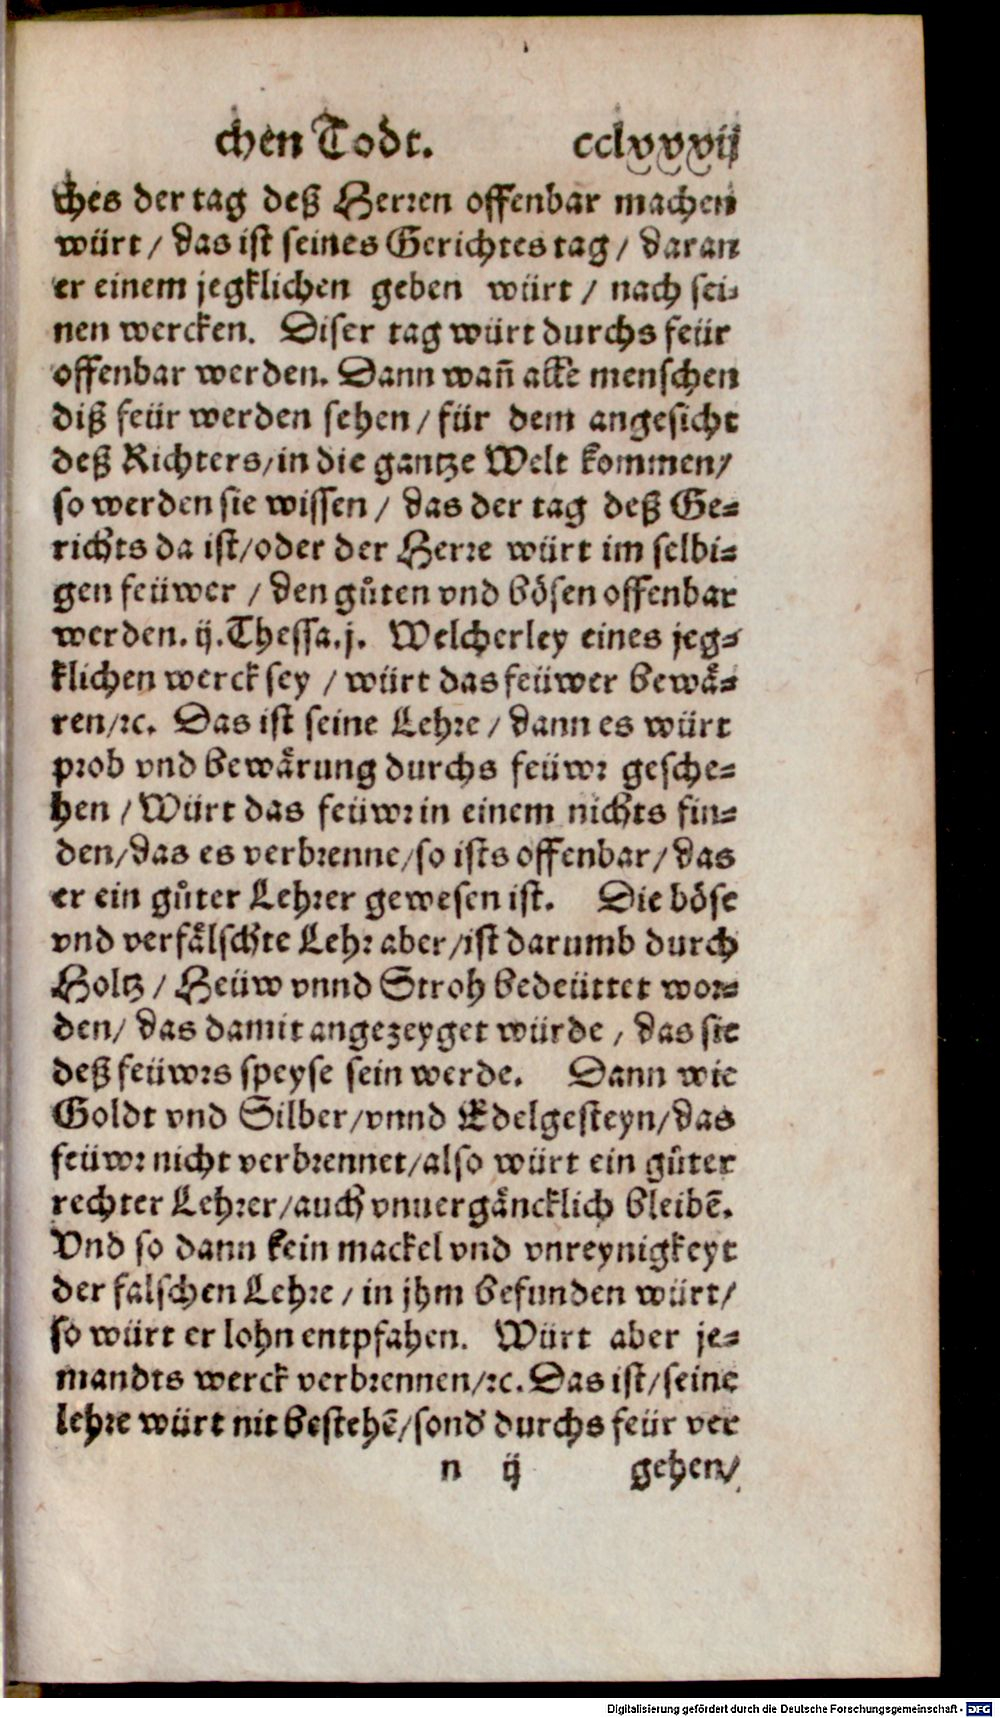 chen Todt. cclxxxij
ches der tag deß Herren offenbar machen
würt / das ist seines Gerichtes tag / daran
er einem jegklichen geben würt / nach sei-
nen wercken. Diser tag würt durchs feür
offenbar werden. Dann wañ alle menschen
diß feür werden sehen / für dem angesicht
deß Richters / in die gantze Welt kommen /
so werden sie wissen / das der tag deß Ge-
richts da ist / oder der Herre würt im selbi-
gen feüwer / den gůten vnd bösen offenbar
werden. ij. Thessa. j. Welcherley eines jeg-
klichen werck sey / würt das feüwer bewä-
ren / ꝛc. Das ist seine Lehre / dann es würt
prob vnd bewärung durchs feüwr gesche-
hen / Würt das feüwr in einem nichts fin-
den / das es verbrenne / so ists offenbar / das
er ein gůter Lehrer gewesen ist. Die böse
vnd verfälschte Lehr aber / ist darumb durch
Holtz / Heüw vnnd Stroh bedeüttet wor-
den / das damit angezeyget würde / das sie
deß feüwrs speyse sein werde. Dann wie
Goldt vnd Silber / vnnd Edelgesteyn / das
feüwr nicht verbrennet / also würt ein gůter
rechter Lehrer / auch vnuergäncklich bleibẽ.
Vnd so dann kein mackel vnd vnreynigkeyt
der falschen Lehre / in jhm befunden würt /
so würt er lohn entpfahen. Würt aber je-
mandts werck verbrennen / ꝛc. Das ist / seine
lehre würt nit bestehẽ / sond' durchs feür ver
n ij gehen /
Digitalisierung gefördert durch die Deutsche Forschungsgemeinschaft - DFG